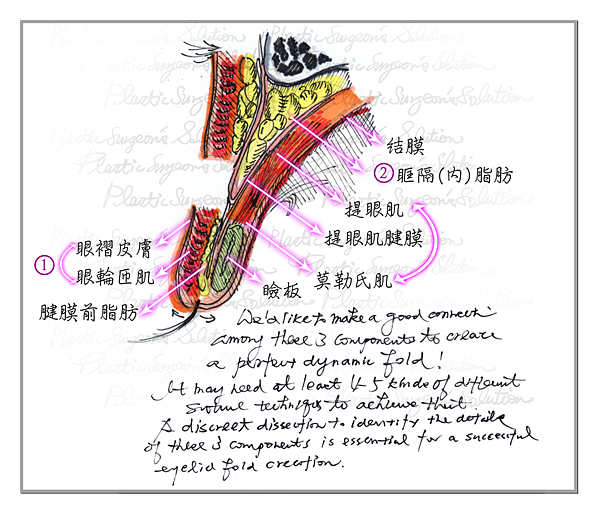 Plastic Surgeon's Solution
結膜
② 眶隔(內)脂肪
提眼肌
提眼肌腱膜
莫勒氏肌
瞼板
①
眼褶皮膚
眼輪匝肌
腱膜前脂肪
We'd like to make a good connecti
among these 3 components to create
a perfect dynamic fold!
It may need at least 4-5 kinds of different
suture techniques to achieve that.
A discreet dissection to identify the details
of these 3 components is essential for a successful
eyelid fold creation.